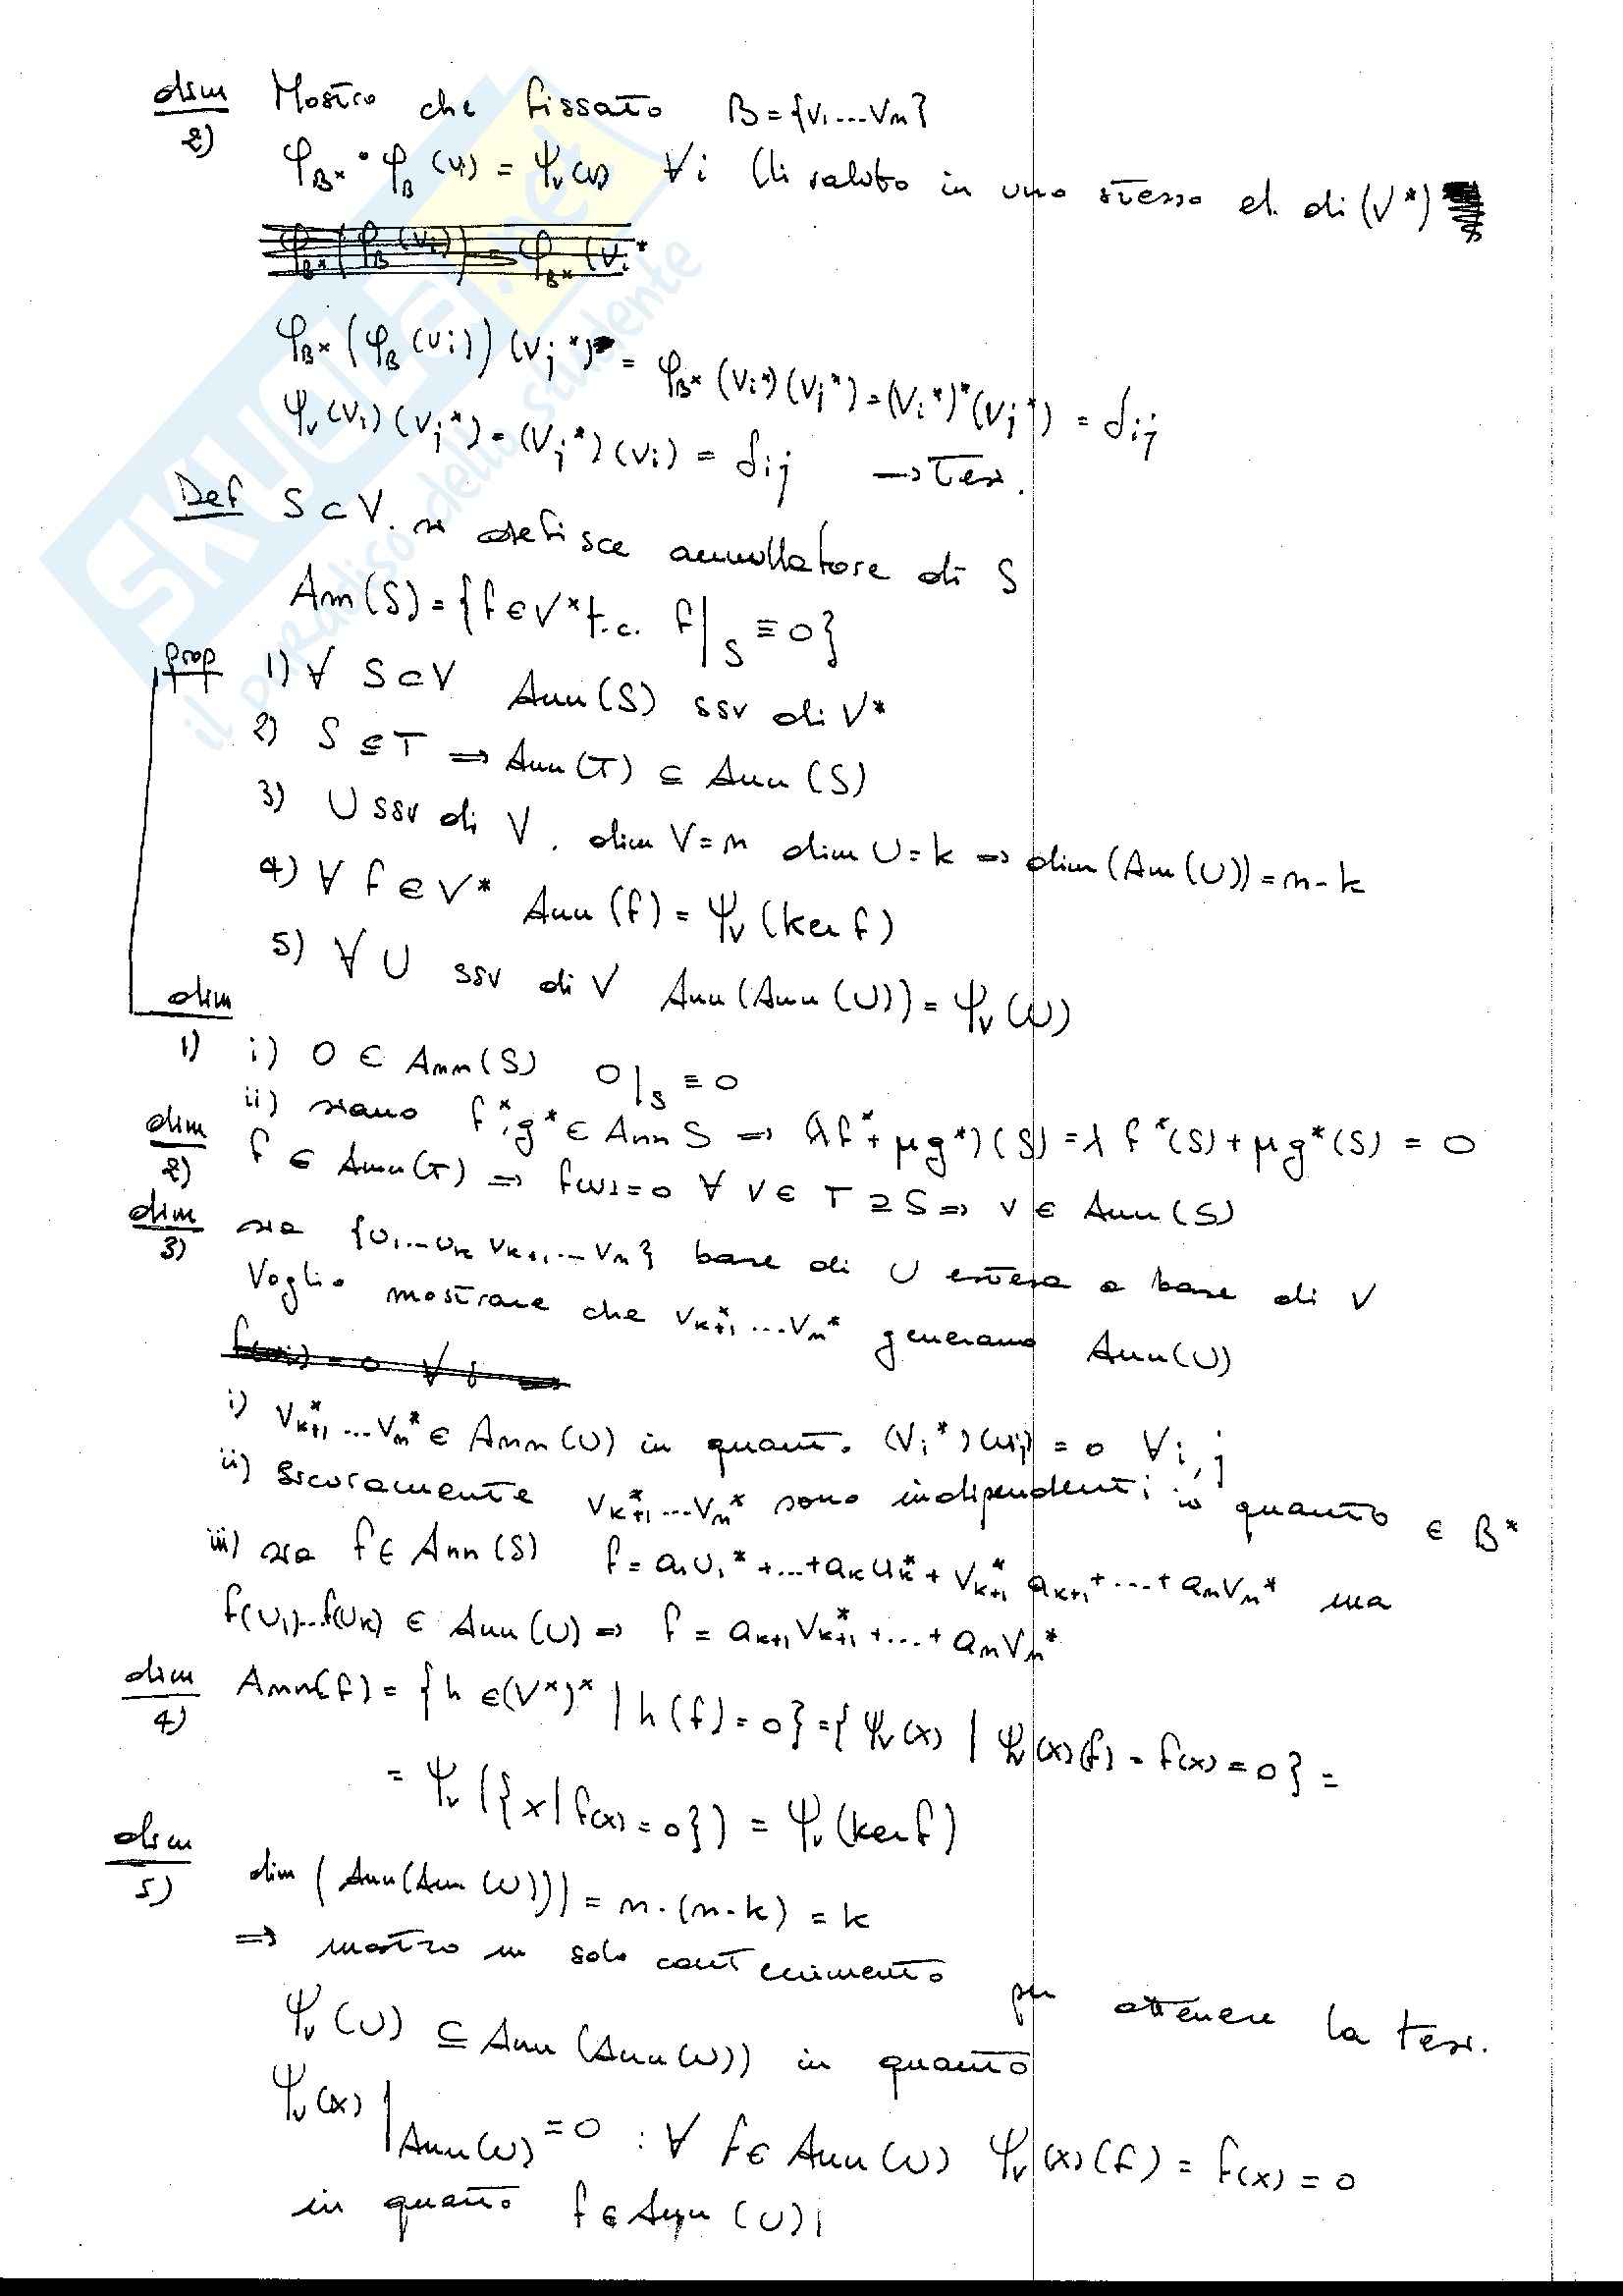 dim Mostro che fissato B={v₁...vₙ}
2) φ_B* ∘ φ_B (vᵢ) = ψ_V(vᵢ) ∀i (li valuto in uno stesso el. di (V*)
φ_B*(φ_B(vᵢ)) = φ_B*(vᵢ*
φ_B*(φ_B(vᵢ))(vⱼ*) = φ_B*(vᵢ*)(vⱼ*) = (vᵢ*)*(vⱼ*) = δᵢⱼ
ψ_V(vᵢ)(vⱼ*) = (vⱼ*)(vᵢ) = δᵢⱼ → Tesi.
Def S ⊂ V. si definisce annullatore di S
Ann(S) = {f ∈ V* t.c. f|_S ≡ 0}
prop 1) ∀ S ⊂ V Ann(S) ssv di V*
2) S ⊆ T ⇒ Ann(T) ⊆ Ann(S)
3) U ssv di V. dim V = n dim U = k ⇒ dim(Ann(U)) = n-k
4) ∀ f ∈ V* Ann(f) = ψ_V(ker f)
5) ∀ U ssv di V Ann(Ann(U)) = ψ_V(U)
dim
1) i) 0 ∈ Ann(S) 0|_S ≡ 0
ii) siano f*, g* ∈ Ann S ⇒ (λf* + μg*)(S) = λ f*(S) + μg*(S) = 0
dim 2) f ∈ Ann(T) ⇒ f(v) = 0 ∀ v ∈ T ⊇ S ⇒ v ∈ Ann(S)
dim 3) sia {u₁...u_k v_k+1...vₙ} base di U estesa a base di V
Voglio mostrare che v_k+1*...vₙ* generano Ann(U)
i) v_k+1*...vₙ* ∈ Ann(U) in quanto (vᵢ*)(uⱼ) = 0 ∀i,j
ii) sicuramente v_k+1*...vₙ* sono indipendenti in quanto ∈ B*
iii) sia f ∈ Ann(S) f = a₁u₁* + ... + a_k u_k* + v_k+1* a_k+1 + ... + aₙvₙ* ma
f(u₁)...f(u_k) ∈ Ann(U) ⇒ f = a_k+1 v_k+1* + ... + aₙvₙ*
dim 4) Ann(f) = {h ∈ (V*)* | h(f) = 0} = {ψ_V(x) | ψ_V(x)(f) = f(x) = 0} =
= ψ_V({x | f(x) = 0}) = ψ_V(ker f)
dim 5) dim(Ann(Ann(U))) = n-(n-k) = k
⇒ mostro un solo contenimento per ottenere la tesi.
ψ_V(U) ⊆ Ann(Ann(U)) in quanto
ψ_V(x)|_Ann(U) = 0 : ∀ f ∈ Ann(U) ψ_V(x)(f) = f(x) = 0
in quanto f ∈ Ann(U)
SKUOLA.net
il paradiso dello studente